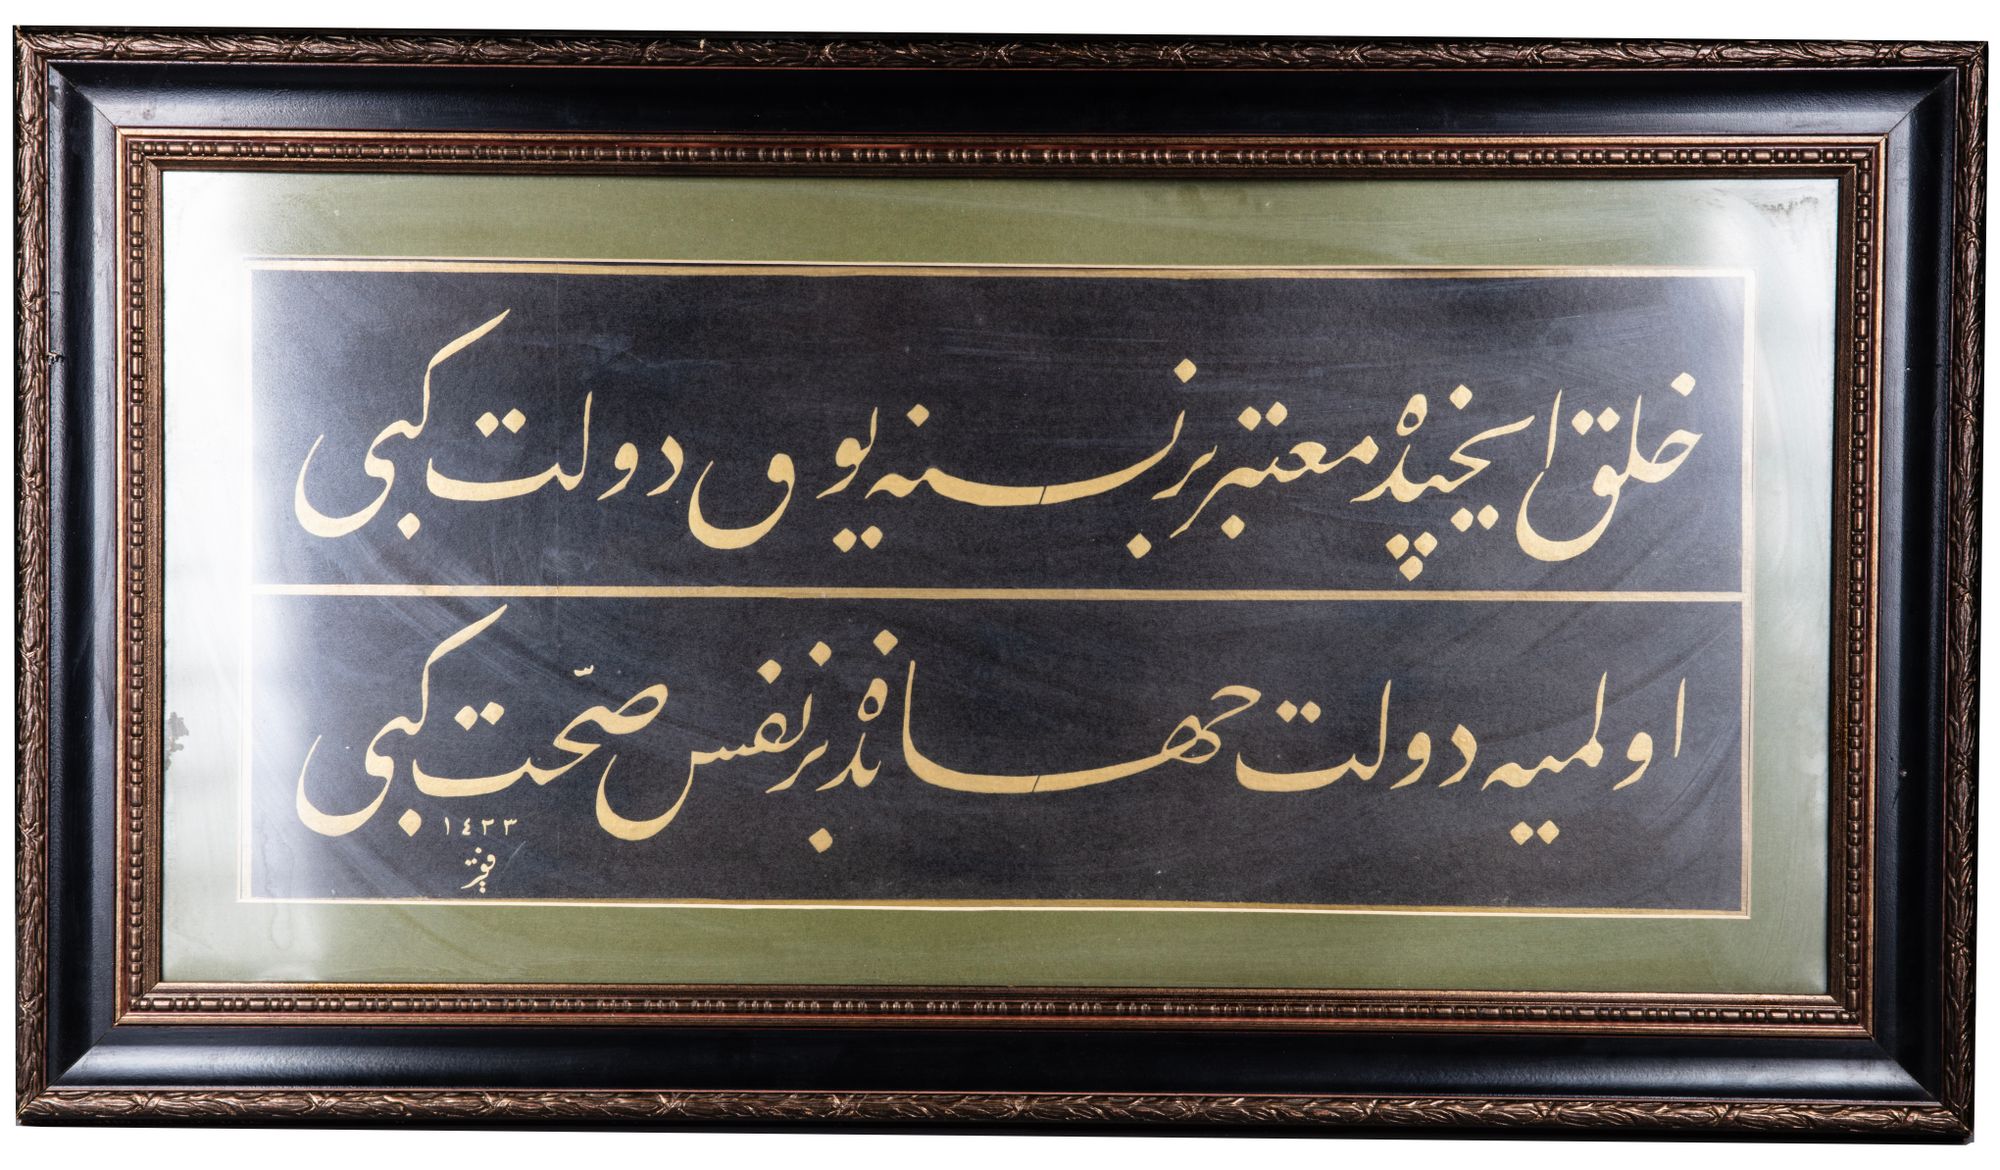 خلق ايچيده معتبر بر نسنه يوق دولت كبى
اولميه دولت جهانده بر نفس صحّت كبى
١٤٢٣